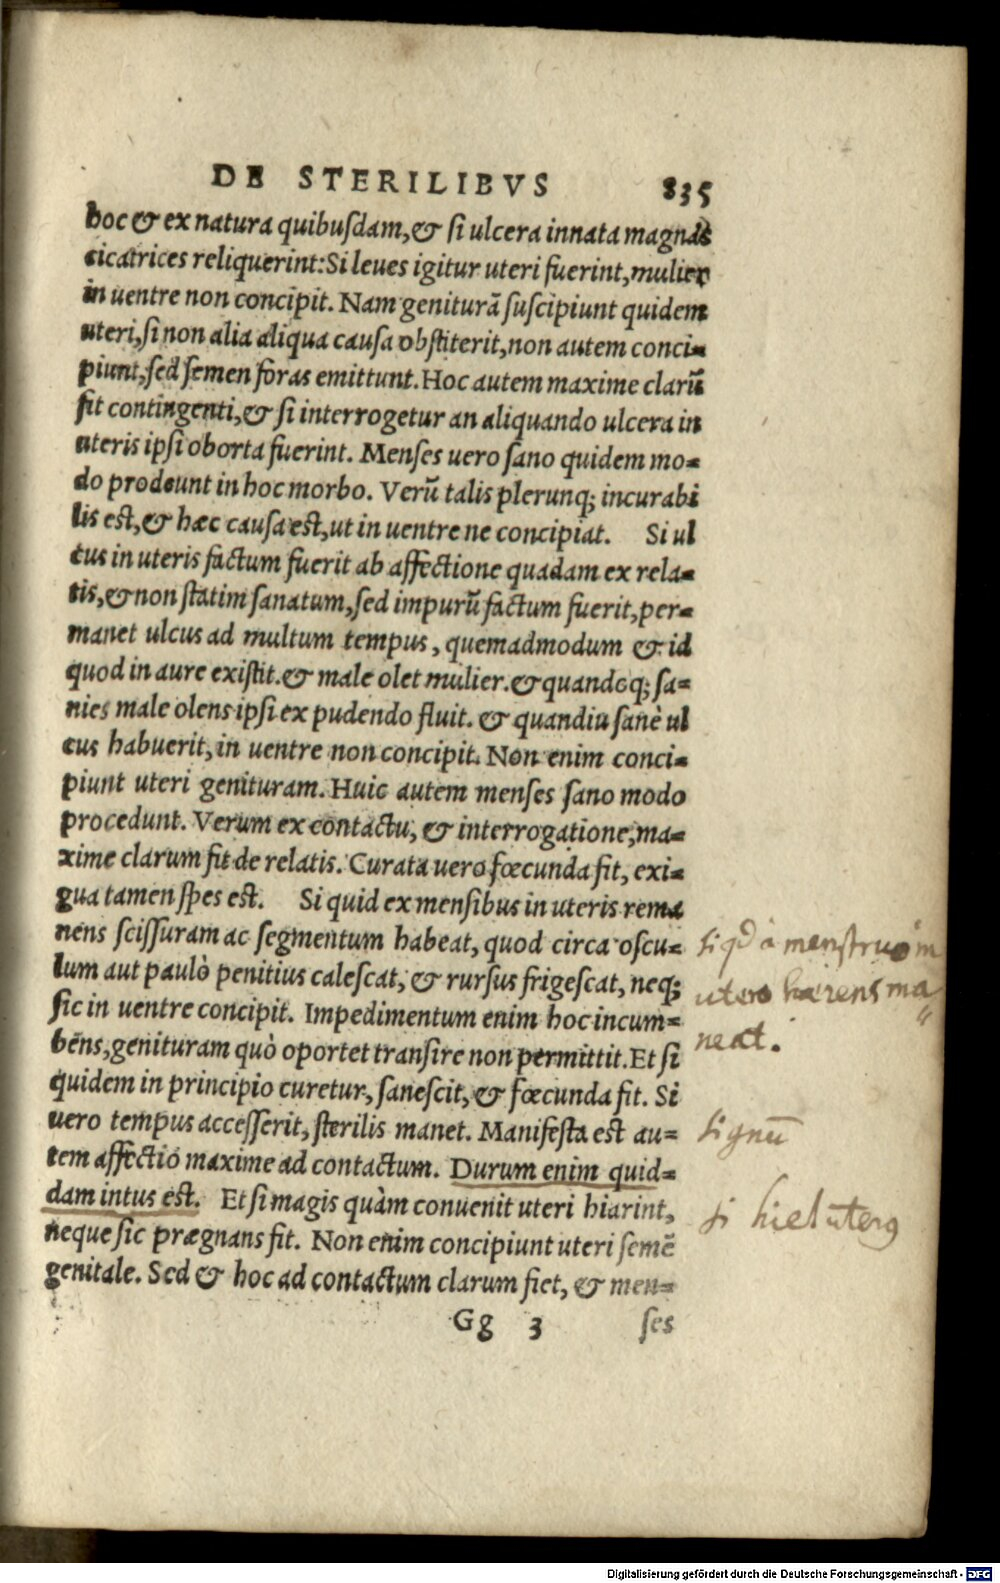 DE STERILIBVS 835
hoc & ex natura quibuſdam, & ſi ulcera innata magnas
cicatrices reliquerint: Si leues igitur uteri fuerint, mulier
in uentre non concipit. Nam geniturā ſuſcipiunt quidem
uteri, ſi non alia aliqua cauſa obſtiterit, non autem conci-
piunt, ſed ſemen foras emittunt. Hoc autem maxime clarū
fit contingenti, & ſi interrogetur an aliquando ulcera in
uteris ipſi oborta fuerint. Menſes uero ſano quidem mo-
do prodeunt in hoc morbo. Verū talis plerunq; incurabi
lis eſt, & hæc cauſa eſt, ut in uentre ne concipiat. Si ul
cus in uteris factum fuerit ab affectione quadam ex rela-
tis, & non ſtatim ſanatum, ſed impurū factum fuerit, per-
manet ulcus ad multum tempus, quemadmodum & id
quod in aure exiſtit. & male olet mulier. & quandoq; ſa-
nies male olens ipſi ex pudendo fluit. & quandiu ſanè ul
cus habuerit, in uentre non concipit. Non enim conci-
piunt uteri genituram. Huic autem menſes ſano modo
procedunt. Verum ex contactu, & interrogatione, ma-
xime clarum fit de relatis. Curata uero fœcunda fit, exi-
gua tamen ſpes eſt. Si quid ex menſibus in uteris rema
nens ſciſſuram ac ſegmentum habeat, quod circa oſcu-
lum aut paulò penitius caleſcat, & rurſus frigeſcat, neq;
ſic in uentre concipit. Impedimentum enim hoc incum-
bēns, genituram quò oportet tranſire non permittit. Et ſi
quidem in principio curetur, ſaneſcit, & fœcunda fit. Si
uero tempus acceſſerit, ſterilis manet. Manifeſta eſt au-
tem affectio maxime ad contactum. Durum enim quid-
dam intus eſt. Et ſi magis quàm conuenit uteri hiarint,
neque ſic prægnans fit. Non enim concipiunt uteri ſemē
genitale. Sed & hoc ad contactum clarum fiet, & men-
Gg 3 ſes
menstruo in
utero hærens ma
neat.
signū
si hiet uterq
Digitalisierung gefördert durch die Deutsche Forschungsgemeinschaft - DFG